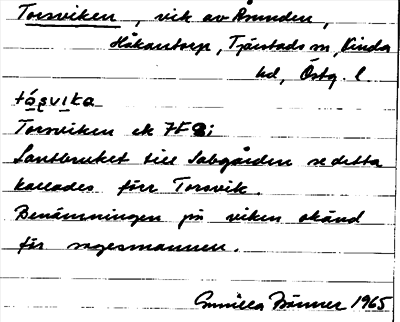 Torsviken, vik av Åsunden,
Håkantorp, Tjärstads sn, Kinda
hd, Östg. l.
tó̱ṣvi̱ka
Torsviken ek 7F8i
Lantbruket till Sabgården se detta
kallades förr Torsvik.
Benämningen på viken okänd
för sagesmannen.
Gunilla Bänner 1965